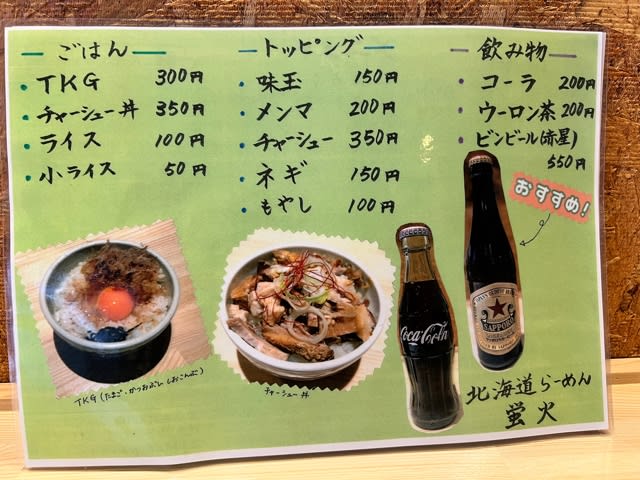 ごはん
TKG 300円
チャーシュー丼 350円
ライス 100円
小ライス 50円
トッピング
味玉 150円
メンマ 200円
チャーシュー 350円
ネギ 150円
もやし 100円
飲み物
コーラ 200円
ウーロン茶 200円
ビンビール(赤星)
550円
おすすめ!
TKG (たまご・かつおぶし しおこんぶ)
チャーシュー丼
Coca-Cola
SAPPORO
北海道らーめん
蛍火